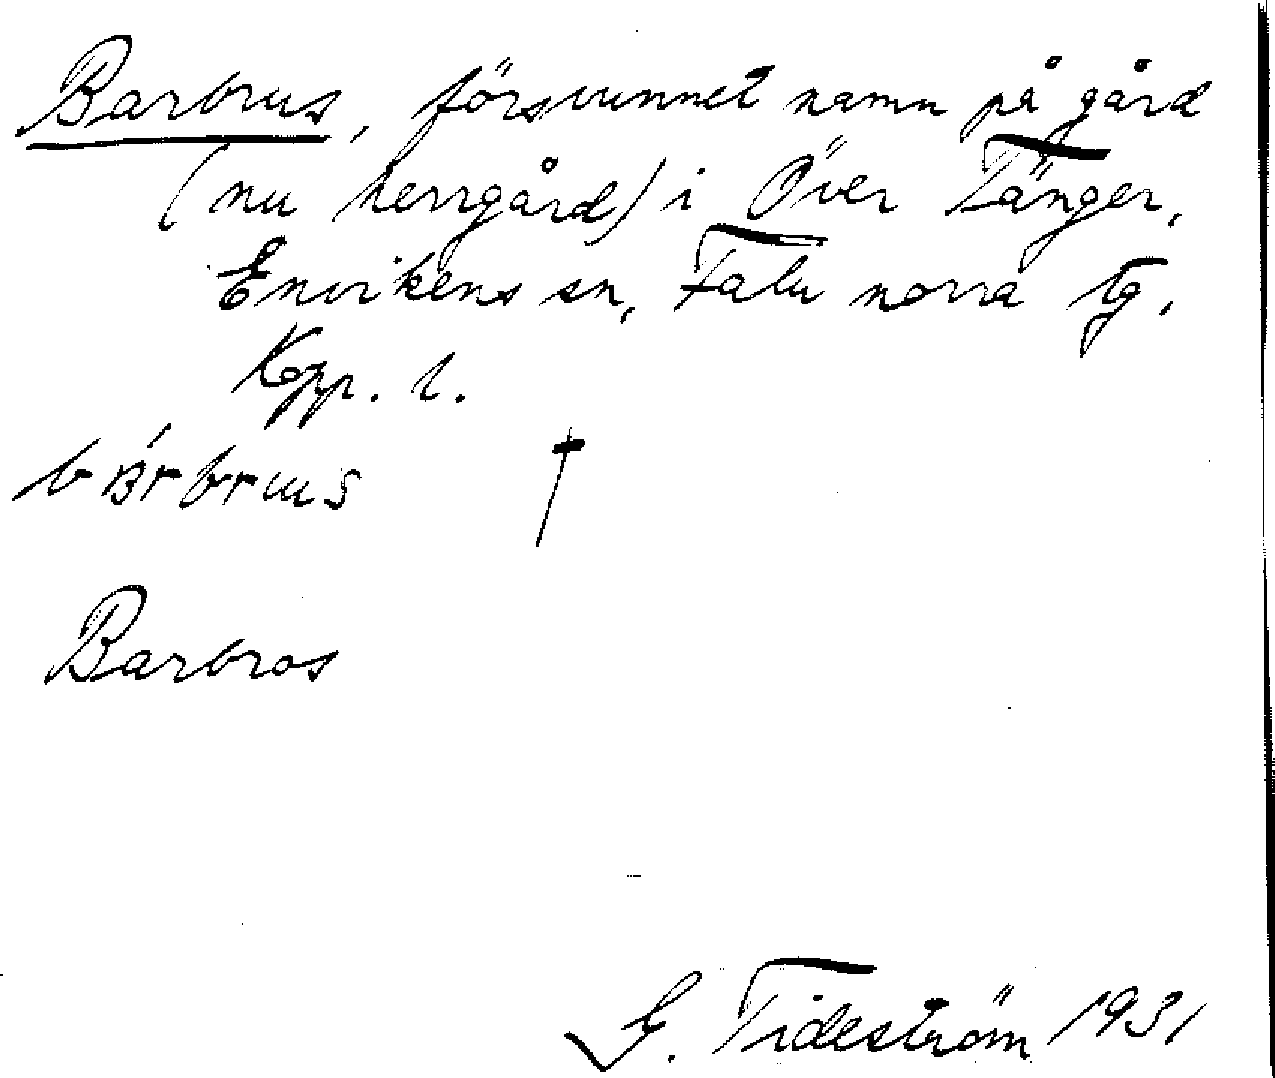 Barbrus, försvunnet namn på gård
(nu herrgård) i Över Tänger,
Envikens sn, Falu norra tg,
Kopp. l.
Barbros
G. Tideström 1931